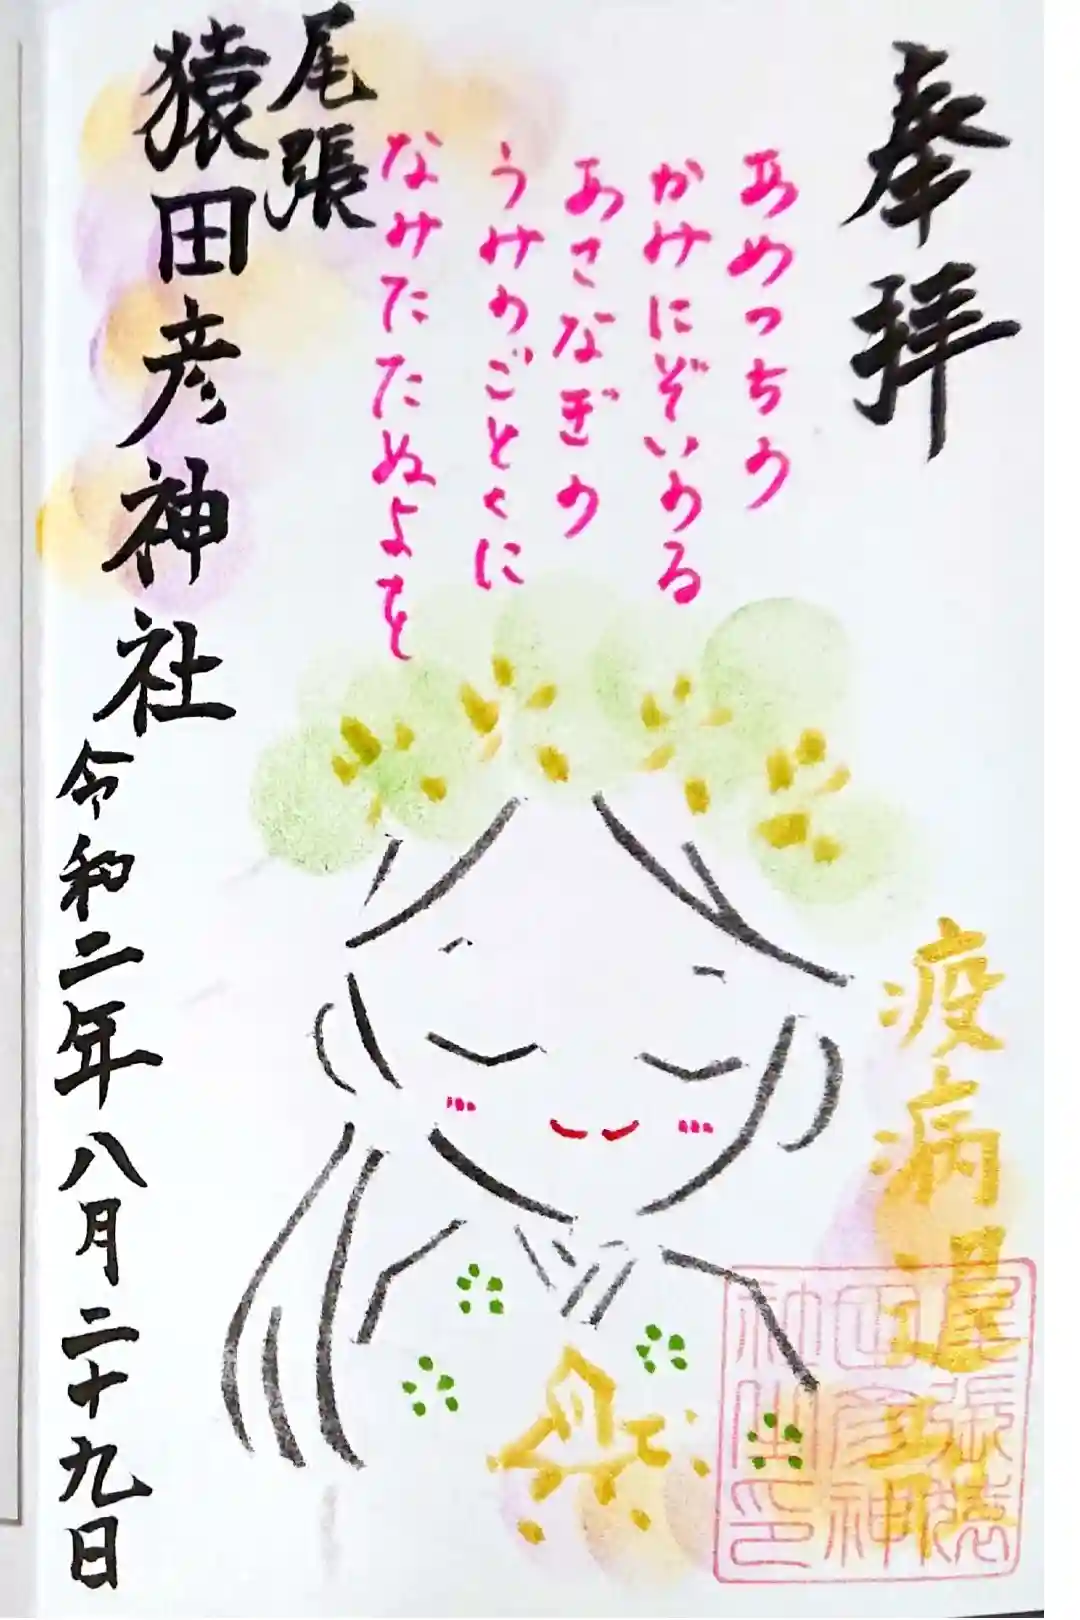 奉拝
あめつちの
かみにぞいのる
あさなぎの
うみのごとくに
なみたたぬよを
尾張
猿田彦神社
令和二年八月二十九日
疫病退散
尾張猿
田彦神
社之印